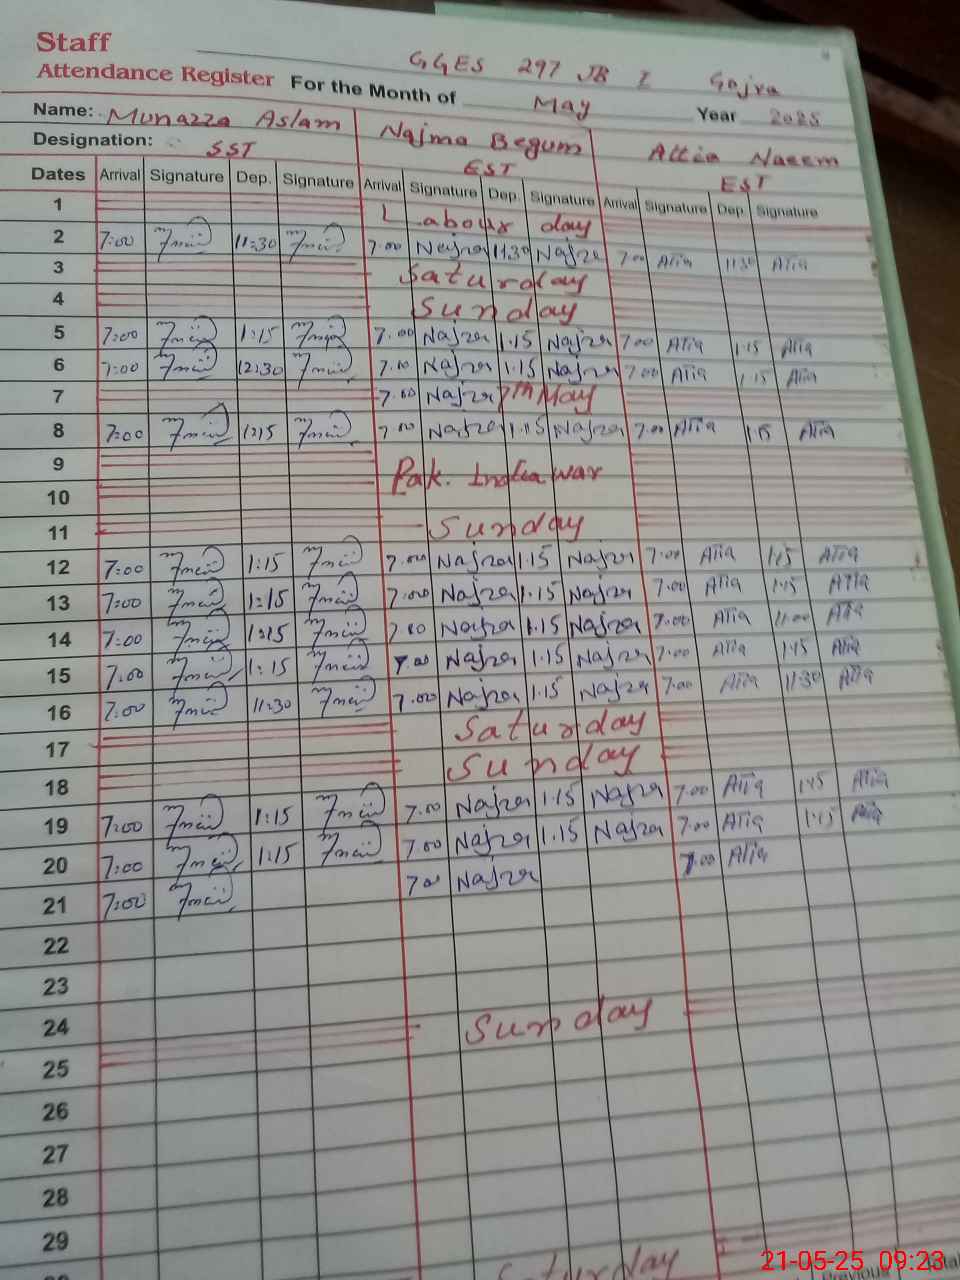 Staff
GGES 297 JB I Gojra
Attendance Register For the Month of May Year 2025
Name: Munazza Aslam Najma Begum Attia Naeem
Designation: SST EST EST
Dates Arrival Signature Dep. Signature Arrival Signature Dep. Signature Arrival Signature Dep. Signature
1 Labour day
2 7:00 11:30 7.00 Najma 11.30 Najma 7.00 Atia 11.30 Atia
3 Saturday
4 Sunday
5 7:00 1:15 7.00 Najma 1.15 Najma 7.00 Atia 1.15 Atia
6 7:00 12:30 7.00 Najma 1.15 Najma 7.00 Atia 1.15 Atia
7 7.00 Najma 7th May
8 7:00 1:15 7.00 Najma 1.15 Najma 7.00 Atia 1.15 Atia
9 Pak. India war
10
11 Sunday
12 7:00 1:15 7.00 Najma 1.15 Najma 7.00 Atia 1.15 Atia
13 7:00 1:15 7.00 Najma 1.15 Najma 7.00 Atia 1.15 Atia
14 7:00 1:15 7.00 Najma 1.15 Najma 7.00 Atia 11.00 Atia
15 7:00 1:15 7.00 Najma 1.15 Najma 7.00 Atia 1.15 Atia
16 7:00 11:30 7.00 Najma 1.15 Najma 7.00 Atia 11.30 Atia
17 Saturday
18 Sunday
19 7:00 1:15 7.00 Najma 1.15 Najma 7.00 Atia 1.15 Atia
20 7:00 1:15 7.00 Najma 1.15 Najma 7.00 Atia 1.15 Atia
21 7:00 7.00 Najma 7.00 Atia
22
23
24
25 Sunday
26
27
28
29
Saturday
21-05-25 09:23
Previous